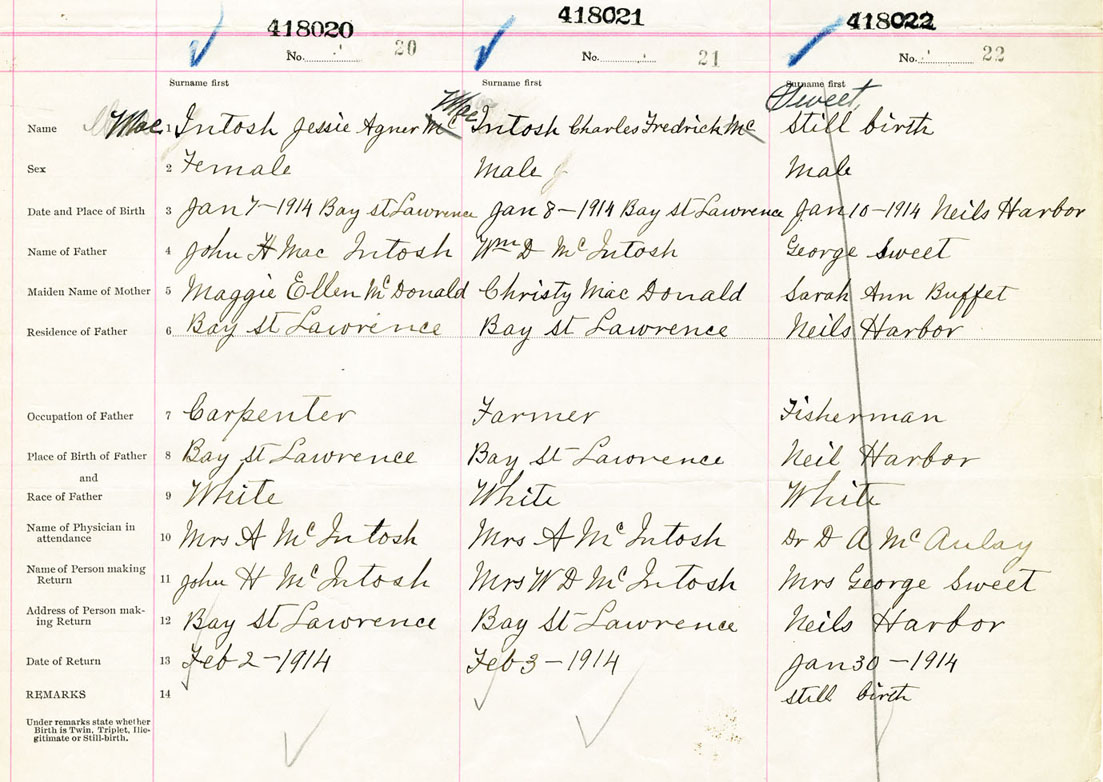 418020 418021 418022
No. 20 No. 21 No. 22
Surname first Surname first Surname first
Mac Sweet,
Name Mac 1 Intosh Jessie Agner Mc Intosh Charles Fredrick Mc Still birth
Sex 2 Female Male Male
Date and Place of Birth 3 Jan 7-1914 Bay st Lawrence Jan 8-1914 Bay st Lawrence Jan 10-1914 Neils Harbor
Name of Father 4 John H Mac Intosh Wm D Mc Intosh George Sweet
Maiden Name of Mother 5 Maggie Ellen McDonald Christy Mac Donald Sarah Ann Buffet
Residence of Father 6 Bay st Lawrence Bay st Lawrence Neils Harbor
Occupation of Father 7 Carpenter Farmer Fisherman
Place of Birth of Father 8 Bay st Lawrence Bay st Lawrence Neil Harbor
and
Race of Father 9 White White White
Name of Physician in attendance 10 Mrs A McIntosh Mrs A McIntosh Dr D A McAulay
Name of Person making Return 11 John H McIntosh Mrs W D McIntosh Mrs George Sweet
Address of Person mak-
ing Return 12 Bay st Lawrence Bay st Lawrence Neils Harbor
Date of Return 13 Feb 2-1914 Feb 3-1914 Jan 30-1914
REMARKS 14 still birth
Under remarks state whether
Birth is Twin, Triplet, Ille-
gitimate or Still-birth.